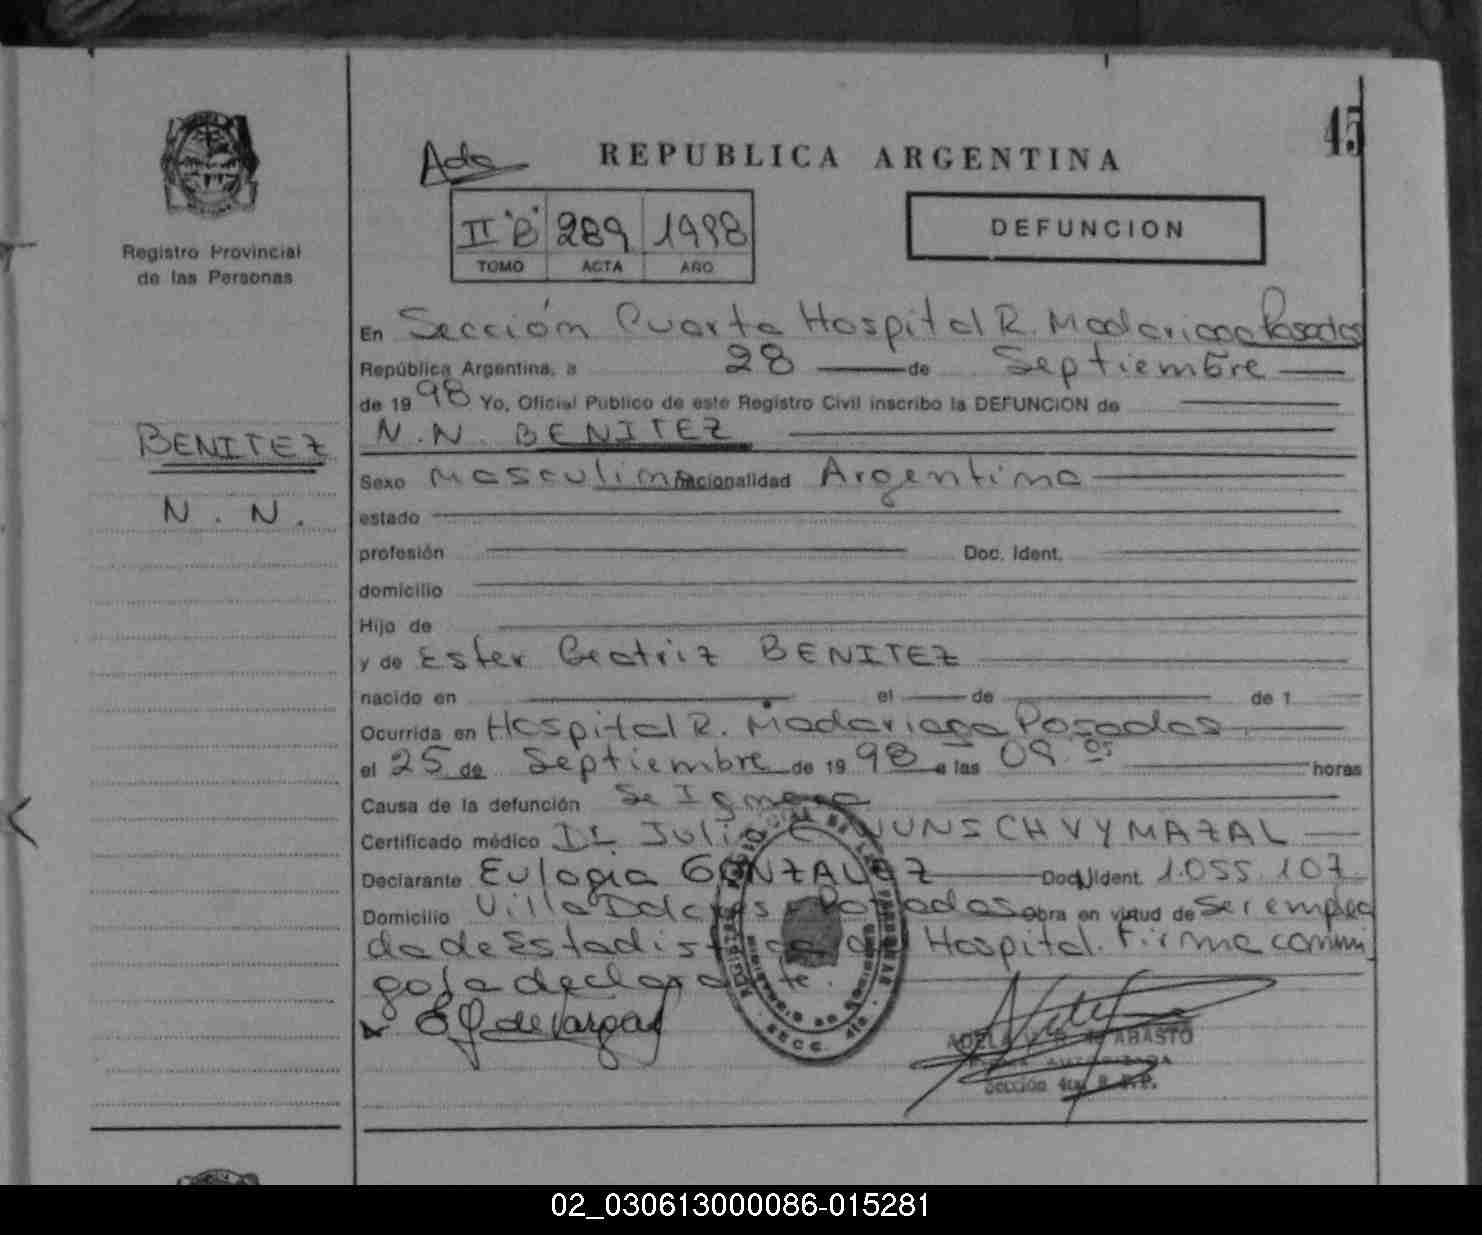 45
Ada
REPUBLICA ARGENTINA
II "B" 289 1998
TOMO ACTA AÑO
DEFUNCION
Registro Provincial
de las Personas
En Sección Cuarta Hospital R. Madariaga Posadas
República Argentina, a 28 de Septiembre
de 19 98 Yo, Oficial Público de este Registro Civil inscribo la DEFUNCION de
BENITEZ
N. N.
N. N. BENITEZ
Sexo Masculino nacionalidad Argentina
estado
profesión Doc. Ident.
domicilio
Hijo de
y de Ester Beatriz BENITEZ
nacido en el de de 1
Ocurrida en Hospital R. Madariaga Posadas
el 25 de Septiembre de 19 98 a las 09.05 horas
Causa de la defunción Se Ignora
Certificado médico Dr. Julio WUNSCH VYMAZAL
Declarante Eulogia GONZALEZ Doc. Ident. 1.055.107
Domicilio Villa Dolores - Posadas obra en virtud de Ser emplea
da de Estadistica del Hospital. Firma conmi
go la declarante.
E G de Vargas
ADELA ABASTO
AUTORIZADA
Sección 4ta R. P. P.
SECC. 4ta
02_030613000086-015281